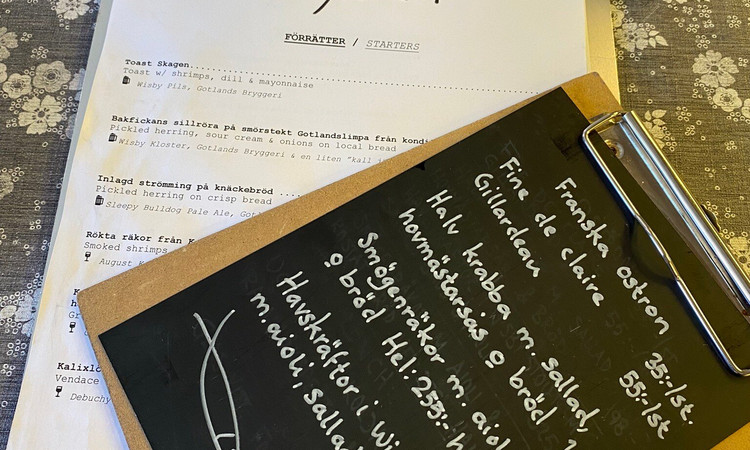 FÖRRÄTTER / STARTERS
Toast Skagen
Toast w/ shrimps, dill & mayonnaise
Wisby Pils, Gotlands Bryggeri
Bakfickans sillröra på smörstekt Gotlandslimpa från
Pickled herring, sour cream & onions on local bread
Wisby Kloster, Gotlands Bryggeri & en liten "kall
Inlagd strömming på knäckebröd
Pickled herring on crisp bread
Sleepy Bulldog Pale Ale,
Rökta räkor från
Smoked shrimps
August
Vendace
Debuchy
Franska ostron
Fine de claire 35:-/st.
Gillardeau 55:-/st
Halv krabba m. sallad,
hovmästarsås o bröd
Smögenräkor m.
o bröd Hel: 255:-
Havskräftor i
m. aioli,